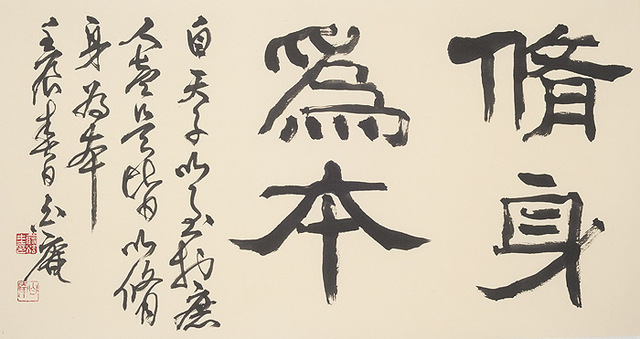 脩身
爲本
自天子以至於庶
人壹是皆以脩
身為本
壬辰春日